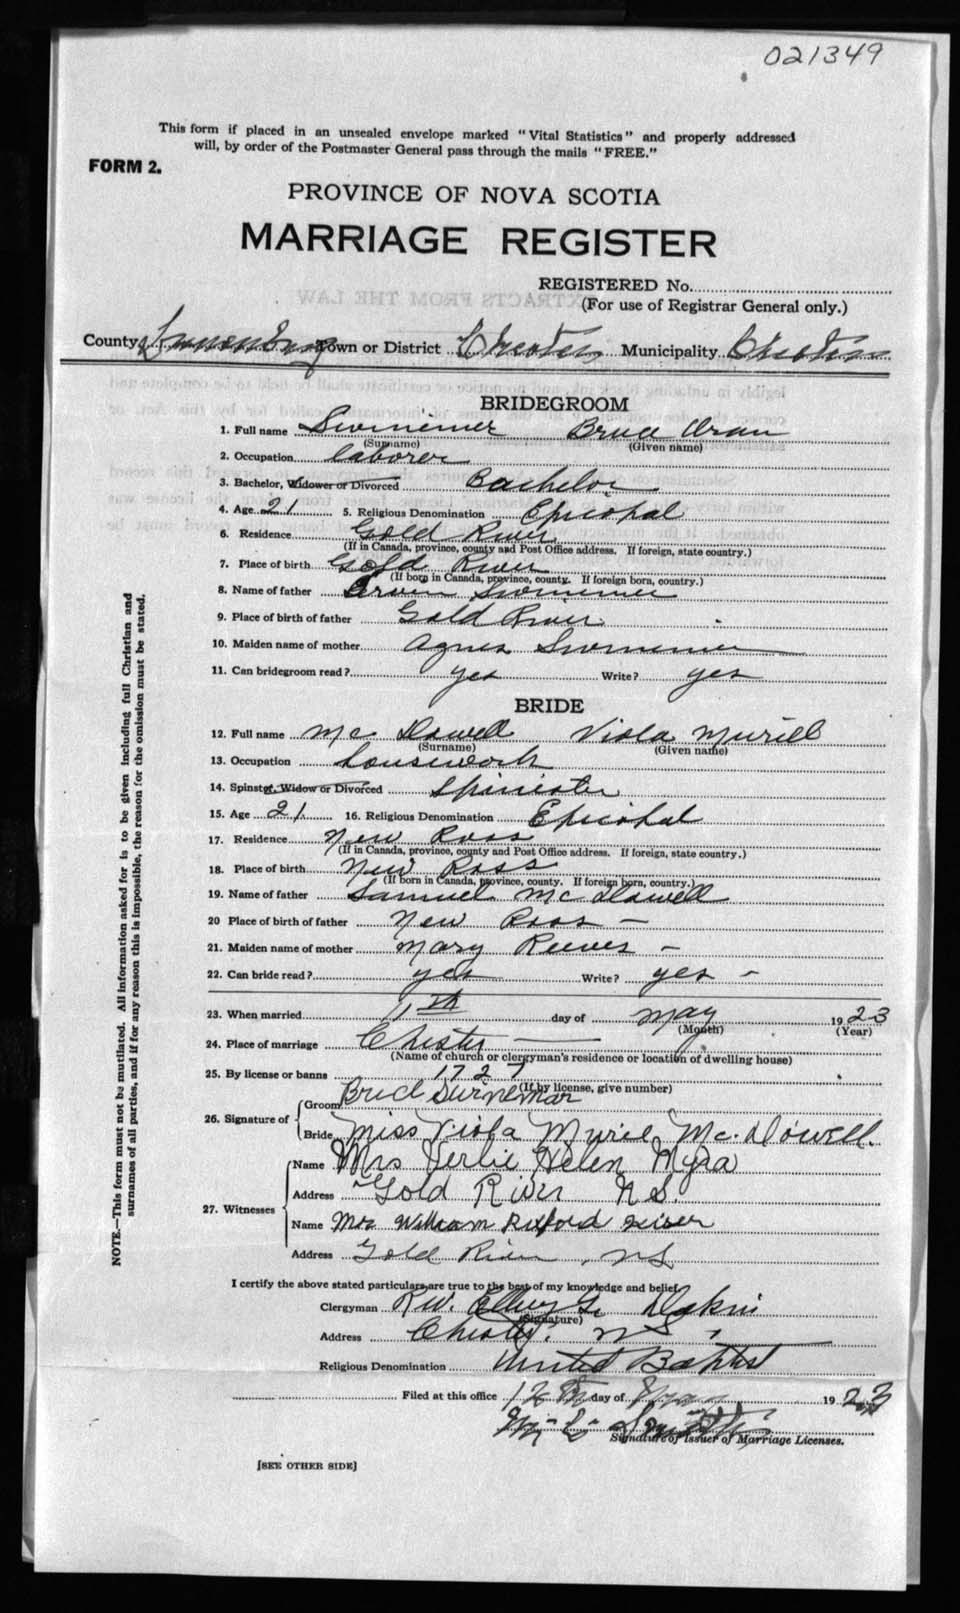 021349
This form if placed in an unsealed envelope marked "Vital Statistics" and properly addressed
will, by order of the Postmaster General pass through the mails "FREE."
FORM 2.
PROVINCE OF NOVA SCOTIA
MARRIAGE REGISTER
REGISTERED No.
(For use of Registrar General only.)
County Lunenburg Town or District Chester Municipality Chester
BRIDEGROOM
1. Full name Swinemer Bruce
(Surname) (Given name)
2. Occupation laborer
3. Bachelor, Widower or Divorced Bachelor
4. Age 21 5. Religious Denomination Episcopal
6. Residence Gold River
(If in Canada, province, county and Post Office address. If foreign, state country.)
7. Place of birth Gold River
(If born in Canada, province, county. If foreign born, country.)
8. Name of father Swinemer
9. Place of birth of father Gold River
10. Maiden name of mother Agnes Swinemer
11. Can bridegroom read? yes Write? yes
BRIDE
12. Full name Mc Dowell Viola Muriel
(Surname) (Given name)
13. Occupation housework
14. Spinster, Widow or Divorced Spinister
15. Age 21 16. Religious Denomination Episcopal
17. Residence New Ross
(If in Canada, province, county and Post Office address. If foreign, state country.)
18. Place of birth New Ross
(If born in Canada, province, county. If foreign born, country.)
19. Name of father Samuel Mc Dowell
20 Place of birth of father New Ross –
21. Maiden name of mother Mary Reeves –
22. Can bride read? yes Write? yes –
23. When married day of May 1923
(Month) (Year)
24. Place of marriage Chester
(Name of church or clergyman's residence or location of dwelling house)
25. By license or banns 1727
(If by license, give number)
26. Signature of
Groom
Bride Miss Viola Myrie Mc. Dowell.
27. Witnesses
Name Mrs Verlie Helen Myra
Address Gold River N.S.
Name William Rexford
Address Gold River, N.S.
I certify the above stated particulars are true to the best of my knowledge and belief.
Clergyman Rev. G. Dakin
(Signature)
Address Chester. N.S.
Religious Denomination United Baptist
Filed at this office 12th day of May 1923
Smith
Signature of Issuer of Marriage Licenses.
[SEE OTHER SIDE]
NOTE.—This form must not be mutilated. All information asked for is to be given including full Christian and
surnames of all parties, and if for any reason this is impossible, the reason for the omission must be stated.